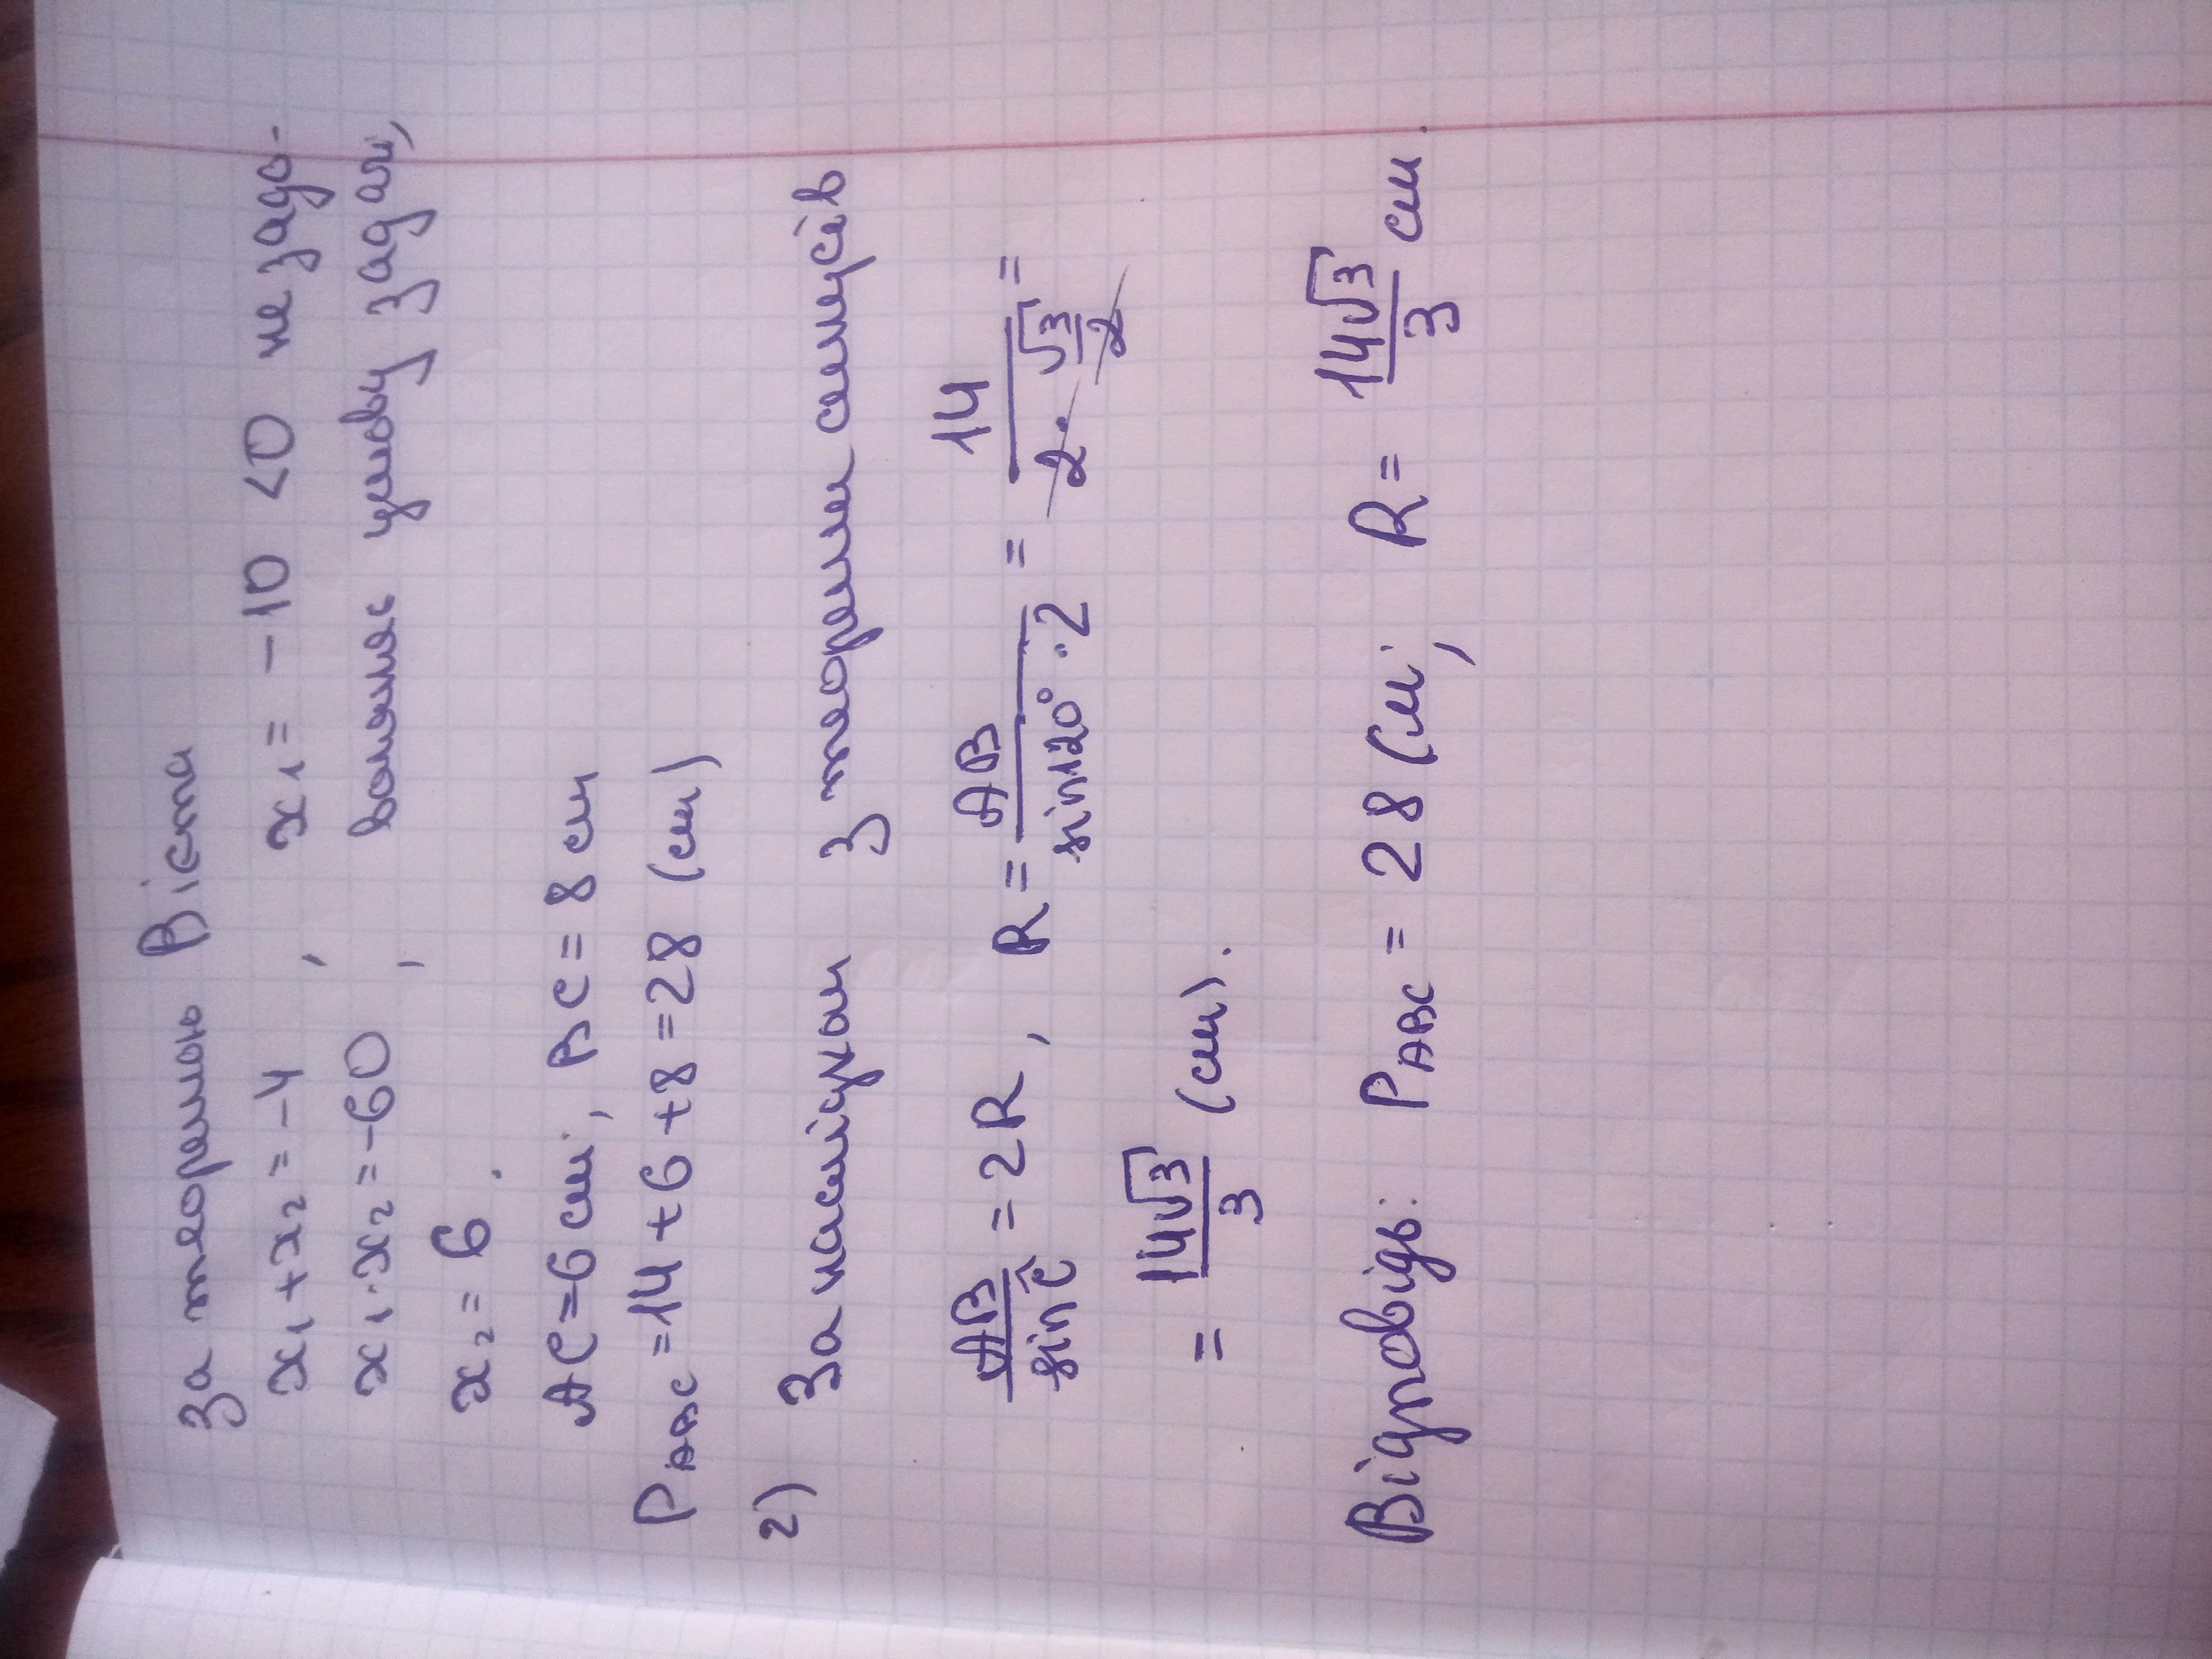 За теоремою Вієта
x₁+x₂=-4, x₁=-10<0 не задо-
x₁·x₂=-60, вольняє умову задачі,
x₂=6.
AC=6см, BC=8см
P_ABC=14+6+8=28 (см)
2) За наслідком з теореми синусів
AB/sin Ĉ=2R, R=AB/(sin120°·2)=14/(2·√3/2)=
=14√3/3 (см).
Відповідь: P_ABC=28см; R=14√3/3 см.